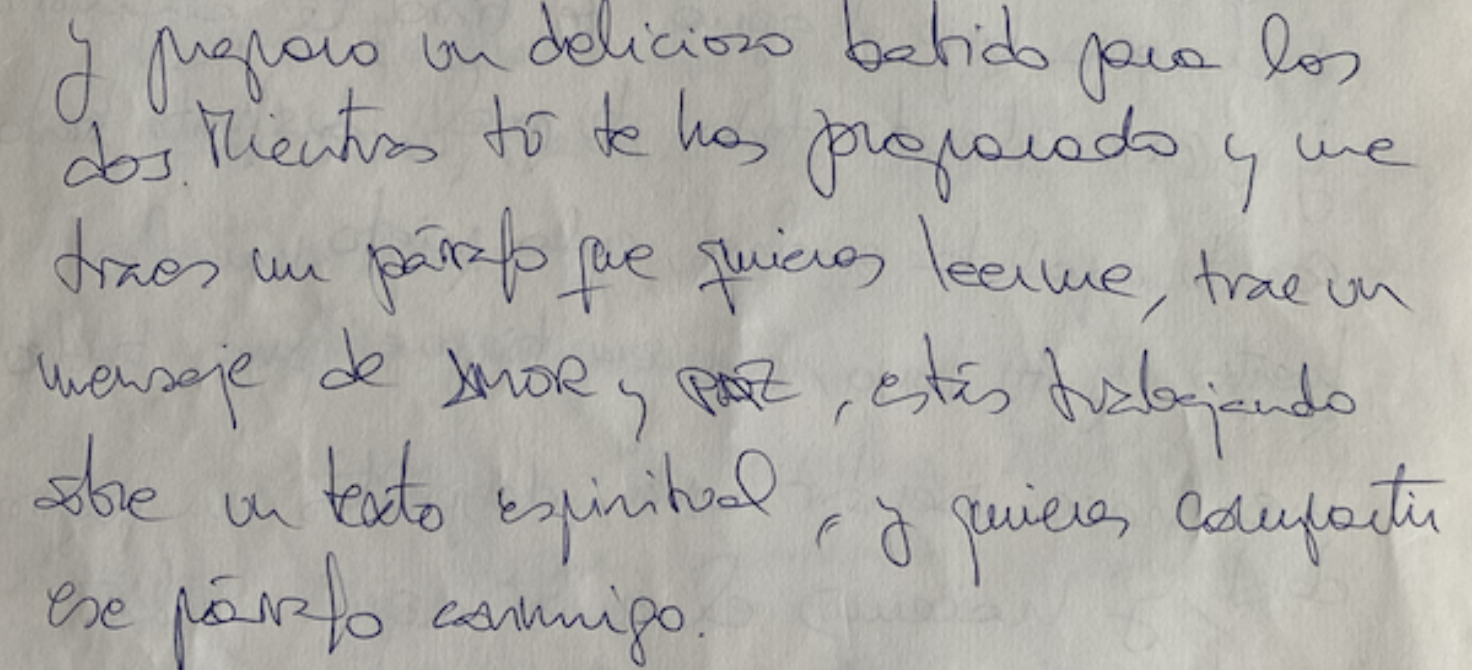 y preparo un delicioso batido para los
dos. Mientras tú te has preparado y me
traes un párrafo que quieres leerme, trae un
mensaje de AMOR y PAZ, estás trabajando
sobre un texto espiritual, y quieres compartir
ese párrafo conmigo.